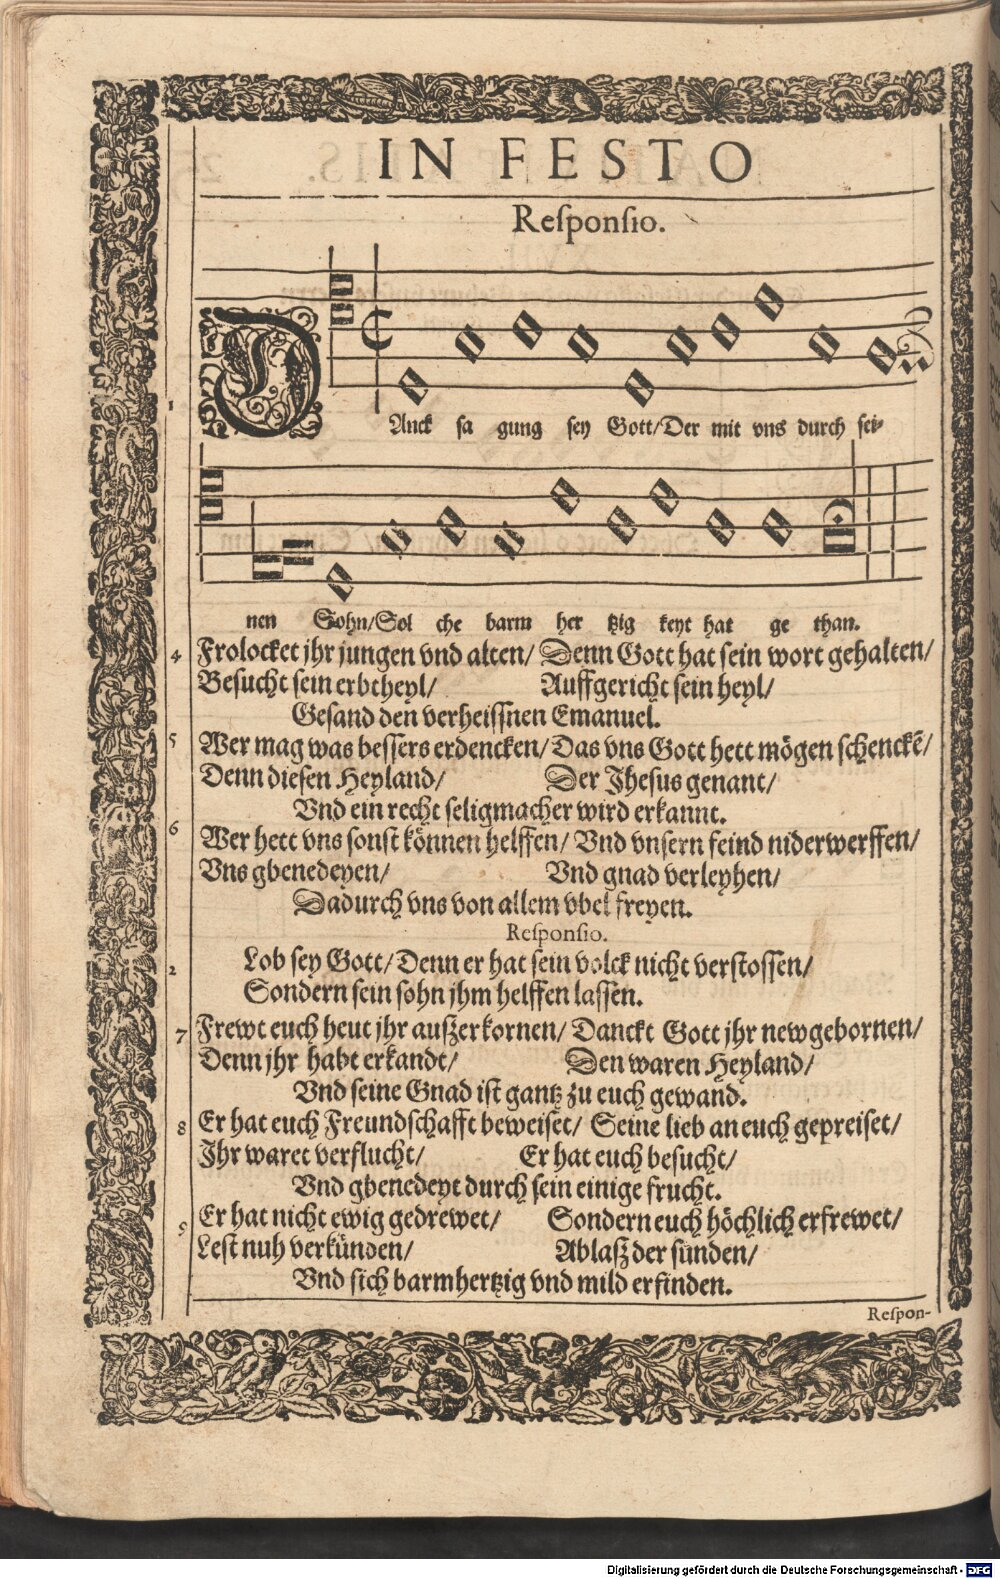 IN FESTO
Reſponſio.
1
DAnck ſa gung ſey Gott/Der mit vns durch ſei-
nen Sohn/Sol che barm her tzig keyt hat ge than.
4 Frolocket jhr jungen vnd alten/ Denn Gott hat ſein wort gehalten/
Beſucht ſein erbtheyl/ Auffgericht ſein heyl/
Geſand den verheiſſnen Emanuel.
5 Wer mag was beſſers erdencken/ Das vns Gott hett mögen ſchenckẽ/
Denn dieſen Heyland/ Der Jheſus genant/
Vnd ein recht ſeligmacher wird erkannt.
6 Wer hett vns ſonſt können helffen/ Vnd vnſern feind niderwerffen/
Vns gbenedeyen/ Vnd gnad verleyhen/
Dadurch vns von allem vbel freyen.
Reſponſio.
2 Lob ſey Gott/ Denn er hat ſein volck nicht verſtoſſen/
Sondern ſein ſohn jhm helffen laſſen.
7 Frewt euch heut jhr außerkornen/ Danckt Gott jhr newgebornen/
Denn jhr habt erkandt/ Den waren Heyland/
Vnd ſeine Gnad iſt gantz zu euch gewand.
8 Er hat euch Freundſchafft beweiſet/ Seine lieb an euch gepreiſet/
Ihr waret verflucht/ Er hat euch beſucht/
Vnd gbenedeyt durch ſein einige frucht.
9 Er hat nicht ewig gedrewet/ Sondern euch höchlich erfrewet/
Leſt nuh verkünden/ Ablaß der ſünden/
Vnd ſich barmhertzig vnd mild erfinden.
Reſpon-
Digitalisierung gefördert durch die Deutsche Forschungsgemeinschaft - DFG